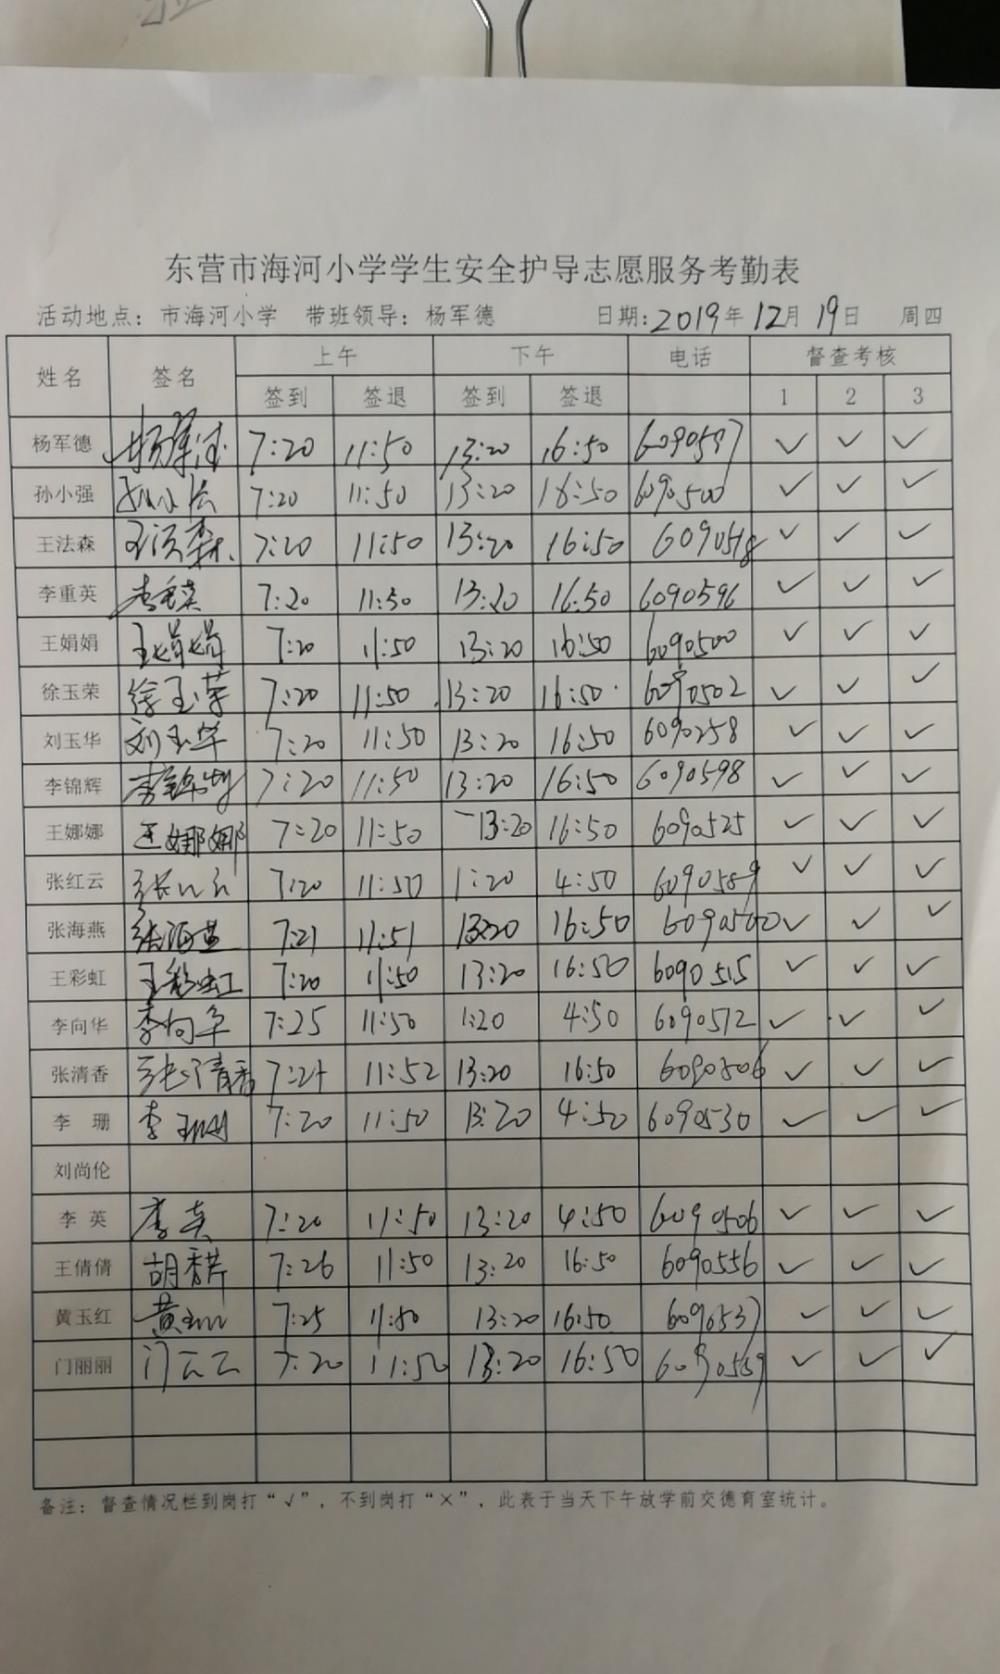 东营市海河小学学生安全护导志愿服务考勤表
活动地点：市海河小学 带班领导：杨军德 日期：2019年12月19日 周四
姓名 签名 上午 下午 电话 督查考核
签到 签退 签到 签退 1 2 3
杨军德 杨军德 7:20 11:50 13:20 16:50 6090597 ✓ ✓ ✓
孙小强 7:20 11:50 13:20 16:50 6090500 ✓ ✓ ✓
王法森 王法森 7:20 11:50 13:20 16:50 6090518 ✓ ✓ ✓
李重英 李重英 7:20 11:50 13:20 16:50 6090596 ✓ ✓ ✓
王娟娟 王娟娟 7:20 11:50 13:20 16:50 6090500 ✓ ✓ ✓
徐玉荣 徐玉荣 7:20 11:50 13:20 16:50 6090502 ✓ ✓ ✓
刘玉华 刘玉华 7:20 11:50 13:20 16:50 6090258 ✓ ✓ ✓
李锦辉 李锦辉 7:20 11:50 13:20 16:50 6090598 ✓ ✓ ✓
王娜娜 王娜娜 7:20 11:50 13:20 16:50 6090525 ✓ ✓ ✓
张红云 张红云 7:20 11:50 1:20 4:50 6090589 ✓ ✓ ✓
张海燕 张海燕 7:21 11:51 13:20 16:50 6090500 ✓ ✓ ✓
王彩虹 王彩虹 7:20 11:50 13:20 16:50 6090515 ✓ ✓ ✓
李向华 李向华 7:25 11:50 1:20 4:50 6090572 ✓ ✓ ✓
张清香 张清香 7:21 11:52 13:20 16:50 6090506 ✓ ✓ ✓
李 珊 李珊 7:20 11:50 13:20 4:50 6090530 ✓ ✓ ✓
刘尚伦
李 英 李英 7:20 11:50 13:20 4:50 6090506 ✓ ✓ ✓
王倩倩 胡秀芹 7:26 11:50 13:20 16:50 6090556 ✓ ✓ ✓
黄玉红 黄玉红 7:25 11:50 13:20 16:50 6090537 ✓ ✓ ✓
门丽丽 门 7:20 11:50 13:20 16:50 6090559 ✓ ✓ ✓
备注：督查情况栏到岗打“√”，不到岗打“×”，此表于当天下午放学前交德育室统计。